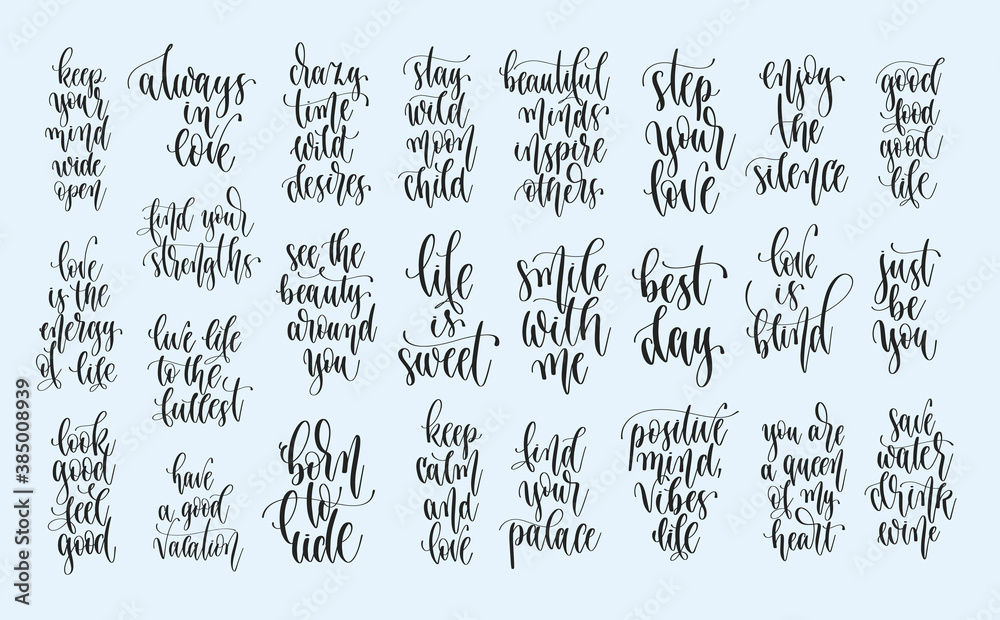 keep
your
mind
wide
open
always
in
love
crazy
time
wild
desires
stay
wild
moon
child
beautiful
minds
inspire
others
step
your
love
enjoy
the
silence
good
food
good
life
find your
strengths
love
is the
energy
of life
live life
to the
fullest
see the
beauty
around
you
life
is
sweet
smile
with
me
best
day
love
is
blind
just
be
you
look
good
feel
good
have
a good
vacation
born
to
ride
keep
calm
and
love
find
your
palace
positive
mind,
vibes
life
you are
a queen
of my
heart
save
water
drink
wine
Adobe Stock | #385008939